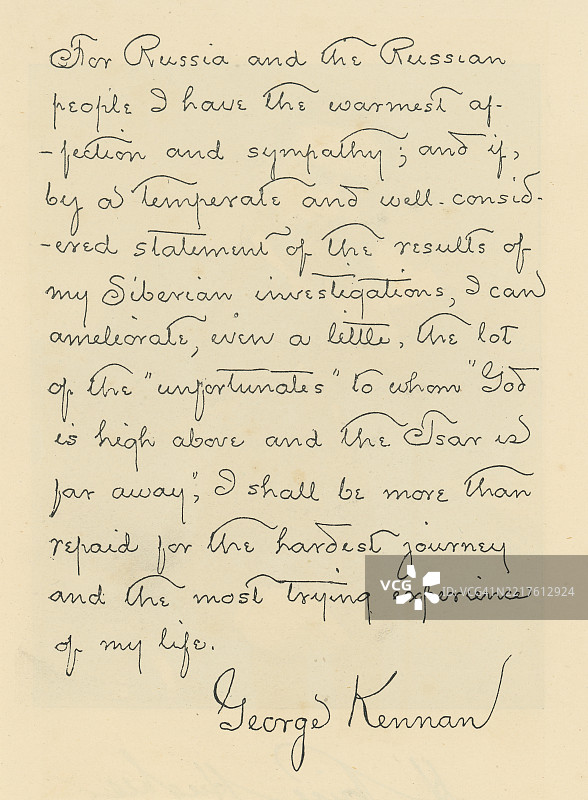 For Russia and the Russian
people I have the warmest af-
-fection and sympathy; and if,
by a temperate and well-consid-
-ered statement of the results of
my Siberian investigations, I can
ameliorate, even a little, the lot
of the "unfortunates" to whom "God
is high above and the Tsar is
far away", I shall be more than
repaid for the hardest journey
and the most trying experience
of my life.
George Kennan
VCG
VCG.COM
ID: VCG41N2217612924